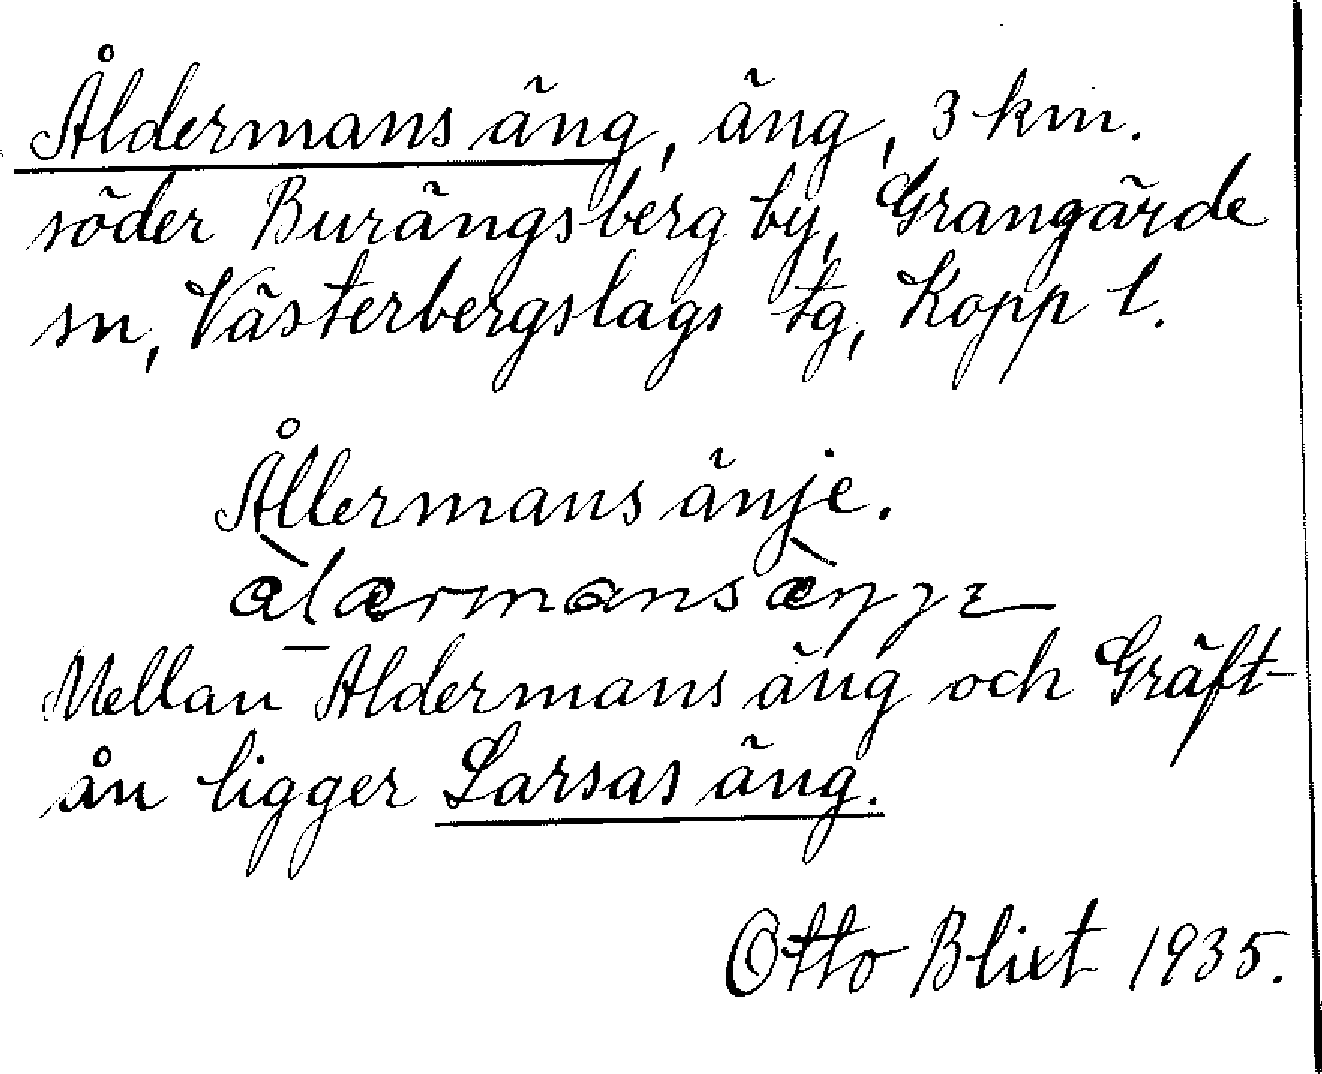 Åldermans äng, äng, 3 km.
söder Burängsberg by, Grangärde
sn, Västerbergslags tg, Kopp l.
Ållermans änje.
àlærmansæ̀ŋje
Mellan Åldermans äng och Gräft-
ån ligger Larsas äng.
Otto Blixt 1935.